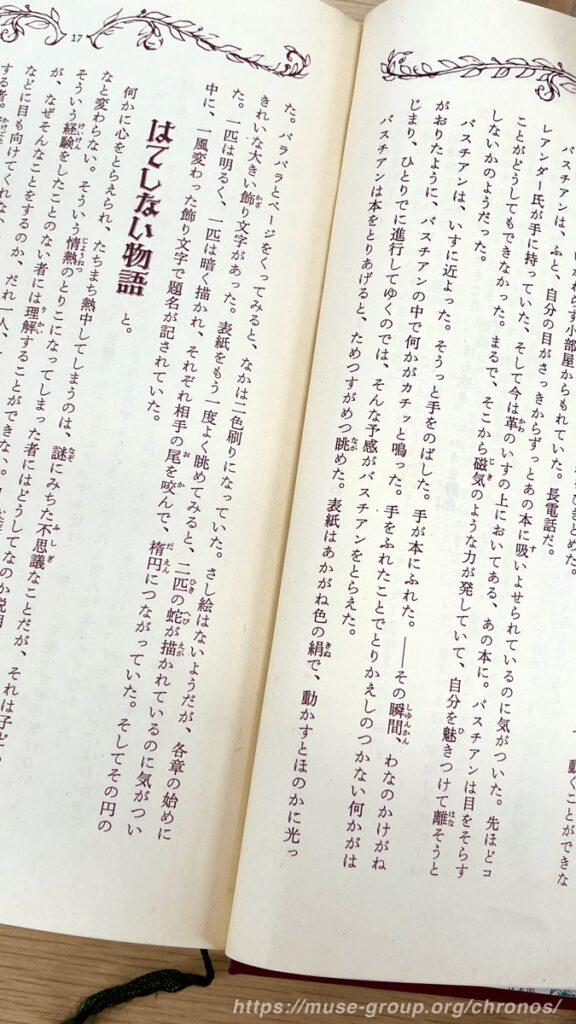 動くことができな
いかわらず小部屋からもれていた。長電話だ。
バスチアンは、ふと、自分の目がさっきからずっとあの本に吸いよせられているのに気がついた。先ほどコ
レアンダー氏が手に持っていた、そして今は革のいすの上においてある、あの本に。バスチアンは目をそらす
ことがどうしてもできなかった。まるで、そこから磁気のような力が発していて、自分を魅きつけて離そうと
しないかのようだった。
バスチアンは、いすに近よった。そうっと手をのばした。手が本にふれた。――その瞬間、わなのかけがね
がおりたように、バスチアンの中で何かがカチッと鳴った。手をふれたことでとりかえしのつかない何かがは
じまり、ひとりでに進行してゆくのでは、そんな予感がバスチアンをとらえた。
バスチアンは本をとりあげると、ためつすがめつ眺めた。表紙はあかがね色の絹で、動かすとほのかに光っ
17
た。パラパラとページをくってみると、なかは二色刷りになっていた。さし絵はないようだが、各章の始めに
きれいな大きい飾り文字があった。表紙をもう一度よく眺めてみると、二匹の蛇が描かれているのに気がつい
た。一匹は明るく、一匹は暗く描かれ、それぞれ相手の尾を咬んで、楕円につながっていた。そしてその円の
中に、一風変わった飾り文字で題名が記されていた。
はてしない物語 と。
何かに心をとらえられ、たちまち熱中してしまうのは、謎にみちた不思議なことだが、それは子ど
なと変わらない。そういう情熱のとりこになってしまった者にはどうしてなのか説明
そういう経験をしたことのない者には理解することができない。
が、なぜそんなことをするのか、だれ一人、
などに目も向けてくれな
する者。
https://muse-group.org/chronos/